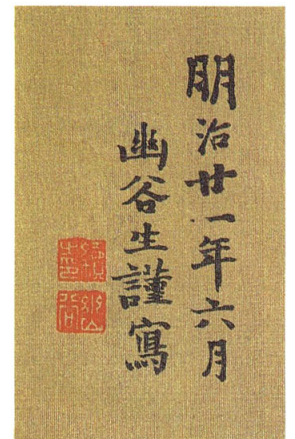 明治廿一年六月
幽谷生謹寫